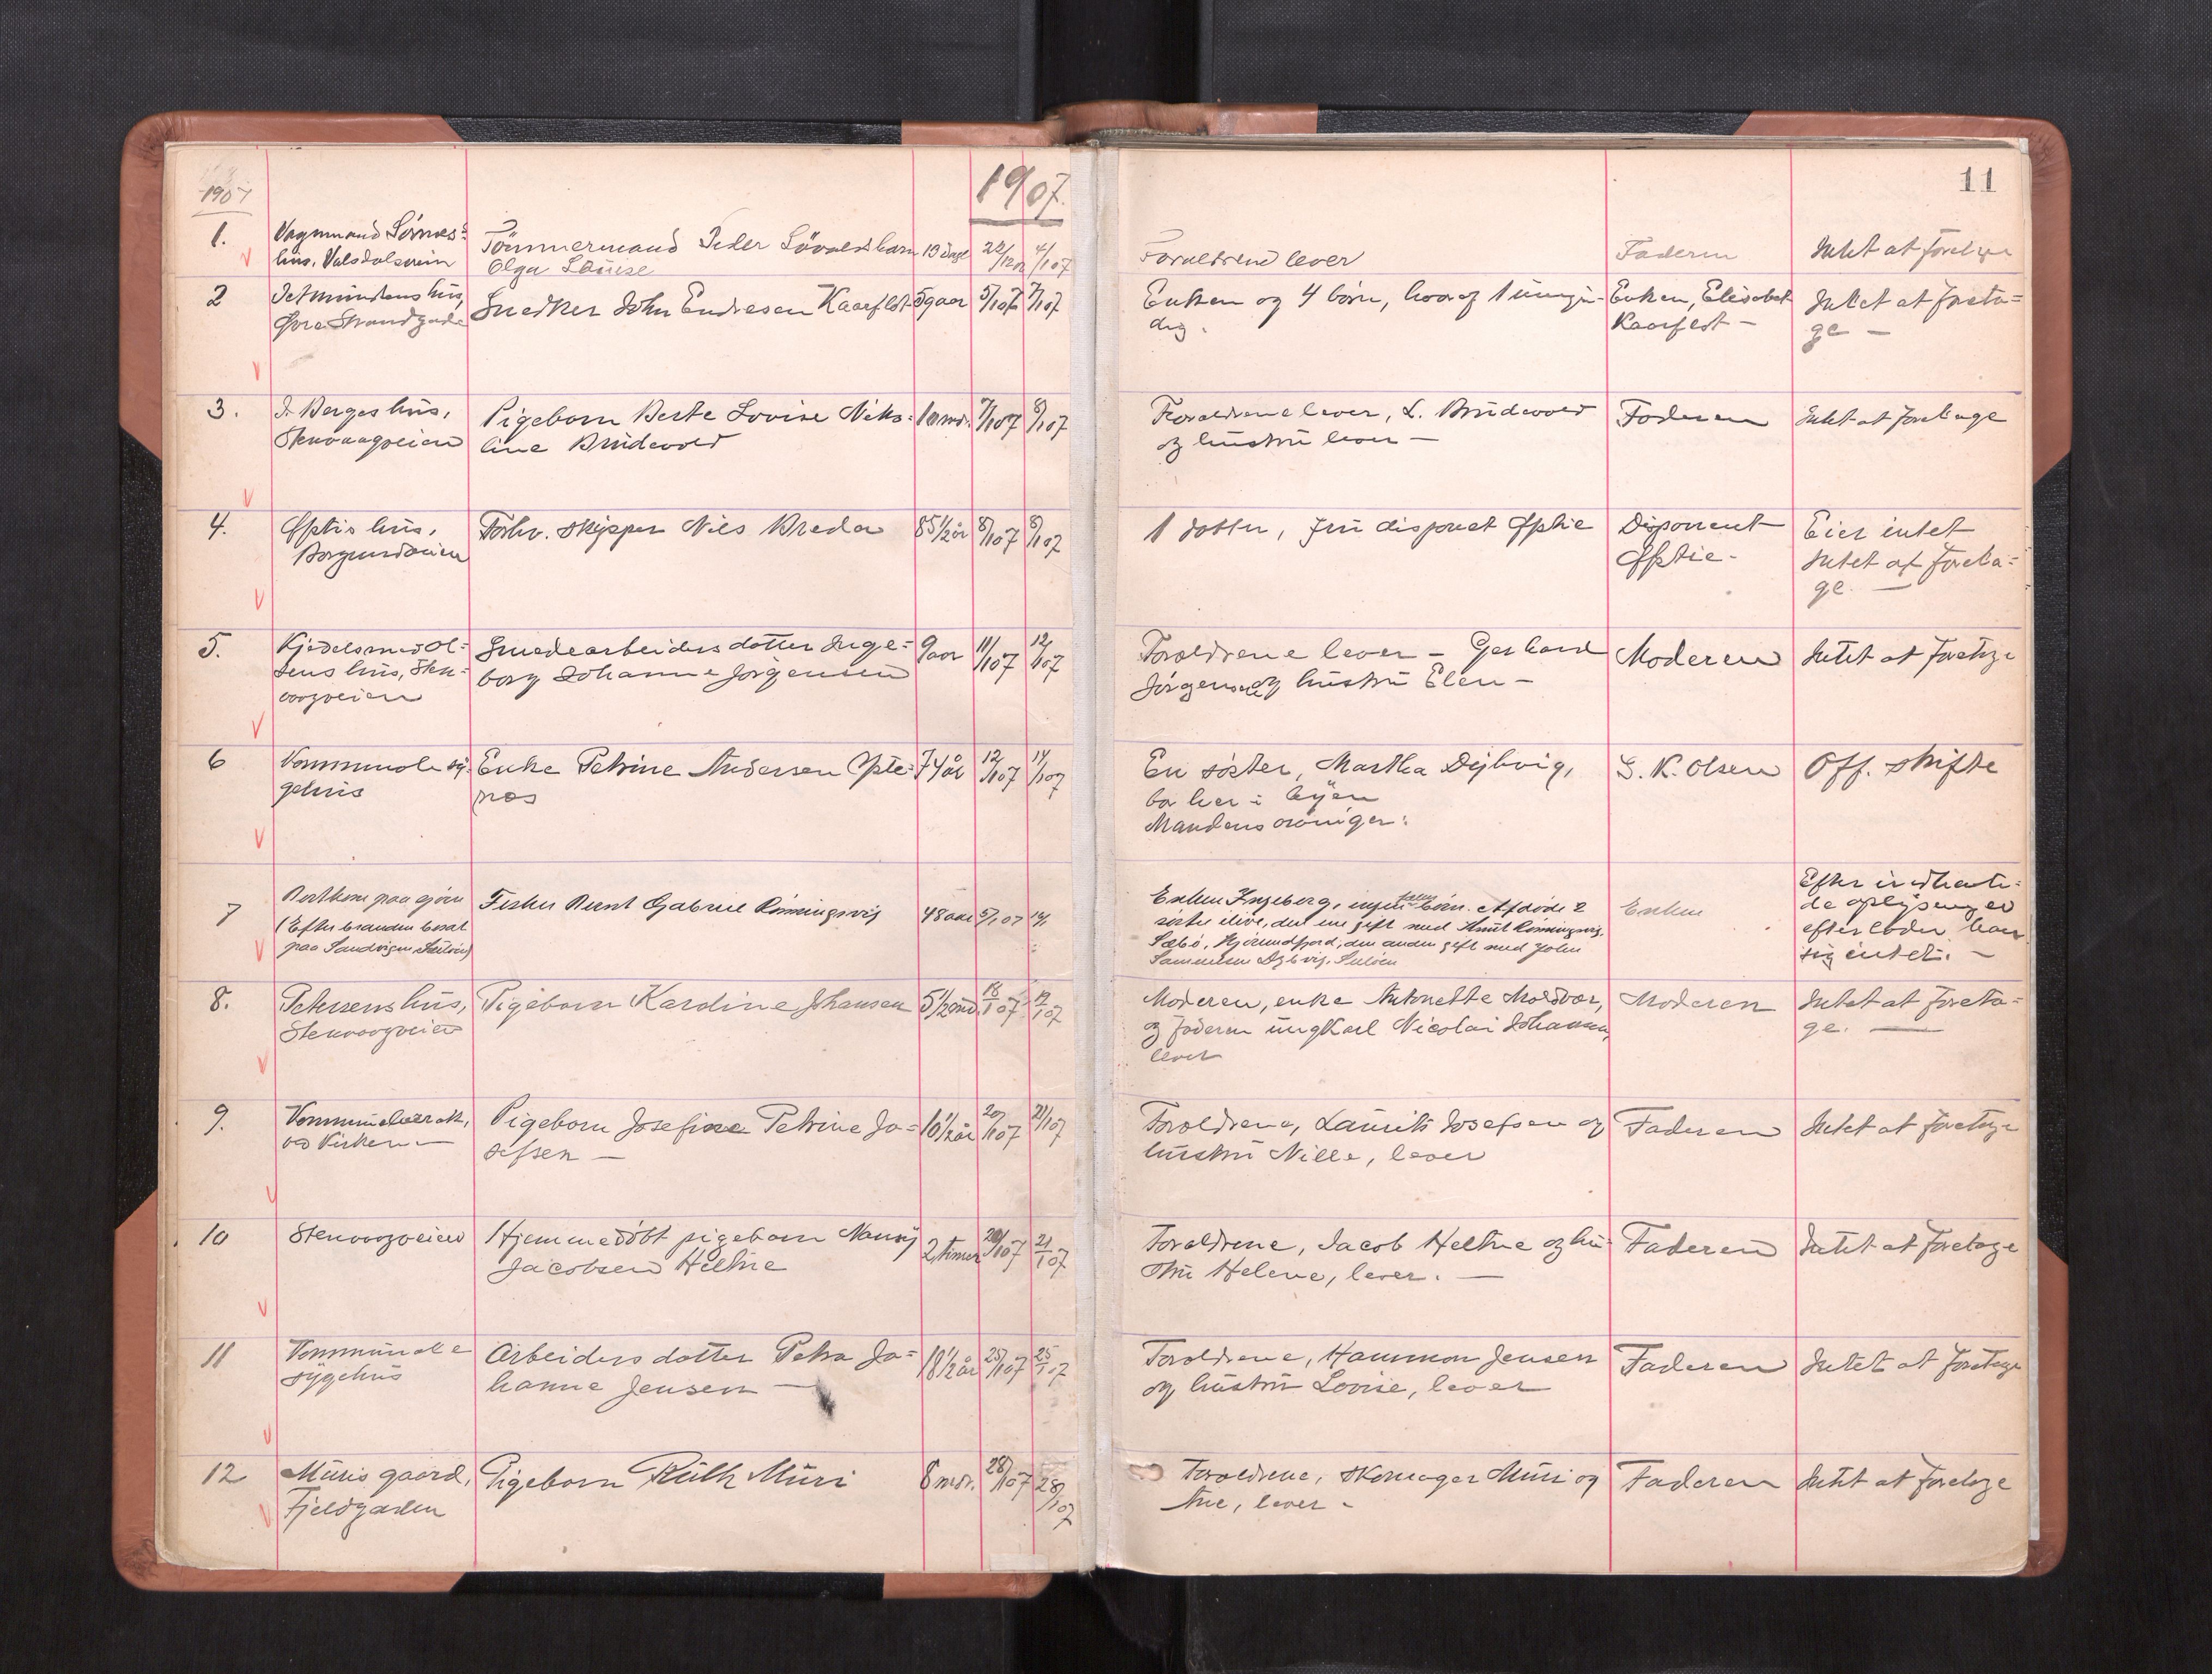 1907
1907.
11
1.
Vognmand Sørnes=
hus, Volsdalsveien
Tømmermand Peder Løvolds barn
Olga Louise
13 dage
22/12 06
4/1 07
Forældrene lever
Faderen
Intet at foretage
2
hus,
Øvre Strandgade
Snedker John Endresen Kaarflot
59 aar
5/1 07
7/1 07
Enken og 4 børn, hvoraf 1 umyn=
dig.
Enken, Elisabet
Kaarflot —
Intet at foreta=
ge —
3.
J. Berges hus,
Stenvaagveien
Pigebarn Berte Lovise Niko=
line Brudevold
10 mdr.
7/1 07
8/1 07
Forældrene lever, L. Brudevold
og hustru lever —
Faderen
Intet at foretage
4.
Øfstis hus,
Borgundveien
Forhv. skipper Nils Breda
85 1/2 år
8/1 07
8/1 07
1 datter, fru disponent Øfstie
Disponent
Øfstie.
Eier intet
Intet at foreta=
ge. —
5.
Kjedelsmed Ol=
sens hus, Sten=
vaagveien
Smedearbeiders datter Inge=
borg Johanne Jørgensen
9 aar
11/1 07
12/1 07
Forældrene lever — Gerhard
Jørgensen og hustru Elen —
Moderen
Intet at foretage
6
Kommunale sy=
gehus
Enke Petrine Andersen Ytte=
næs
74 år
12/1 07
14/1 07
En søster, Martha Dybvig,
bor her i byen
Mandens arvinger:
S. K. Olsen
Off. skifte
7
Bortkom paa sjøen
(Efter branden bosat
paa Sandvigen, Suløen)
Fisker Bernt Gabriel Rønningsvig
48 aar
5/1 07
14/1
Enken Ingeberg, ingen børn. Afdøde 2
søstre ilive, den ene gift med Knut Rønningsvig,
Sæbø, Hjørundfjord, den anden gift med John
Samuelsen Dybvig, Suløen
Enken
Efter indhente=
de oplysninger
efterlader han
sig intet. —
8.
Petersens hus,
Stenvaagveien
Pigebarn Karoline Johansen
5 1/2 md.
18/1 07
19/1 07
Moderen, enke Antonette Moldvær,
og faderen ungk. Karl Nicolai Johansen,
lever
Moderen
Intet at foreta=
ge. —
9.
Kommunebarakk,
ved Kirken —
Pigebarn Josefine Petrine Jo=
sefsen —
10 1/2 år
20/1 07
21/1 07
Forældrene, Laurits Josefsen og
hustru Nille, lever
Faderen
Intet at foretage
10
Stenvaagveien
Hjemmedøbt pigebarn Nanny
Jacobsen Heltne
2 timer
20/1 07
21/1 07
Forældrene, Jacob Heltne og hu=
stru Helene, lever. —
Faderen
Intet at foretage
11
Kommunale
sygehus
Arbeiders datter Petra Jo=
hanne Jensen —
18 1/2 år
25/1 07
25/1 07
Forældrene, Hammon Jensen
og hustru Lovise, lever
Faderen
Intet at foretage
12
Muris gaard,
Fjeldgaden
Pigebarn Ruth Muri
8 mdr.
28/1 07
28/1 07
Forældrene, skomager Muri og
frue, lever.
Faderen
Intet at foretage